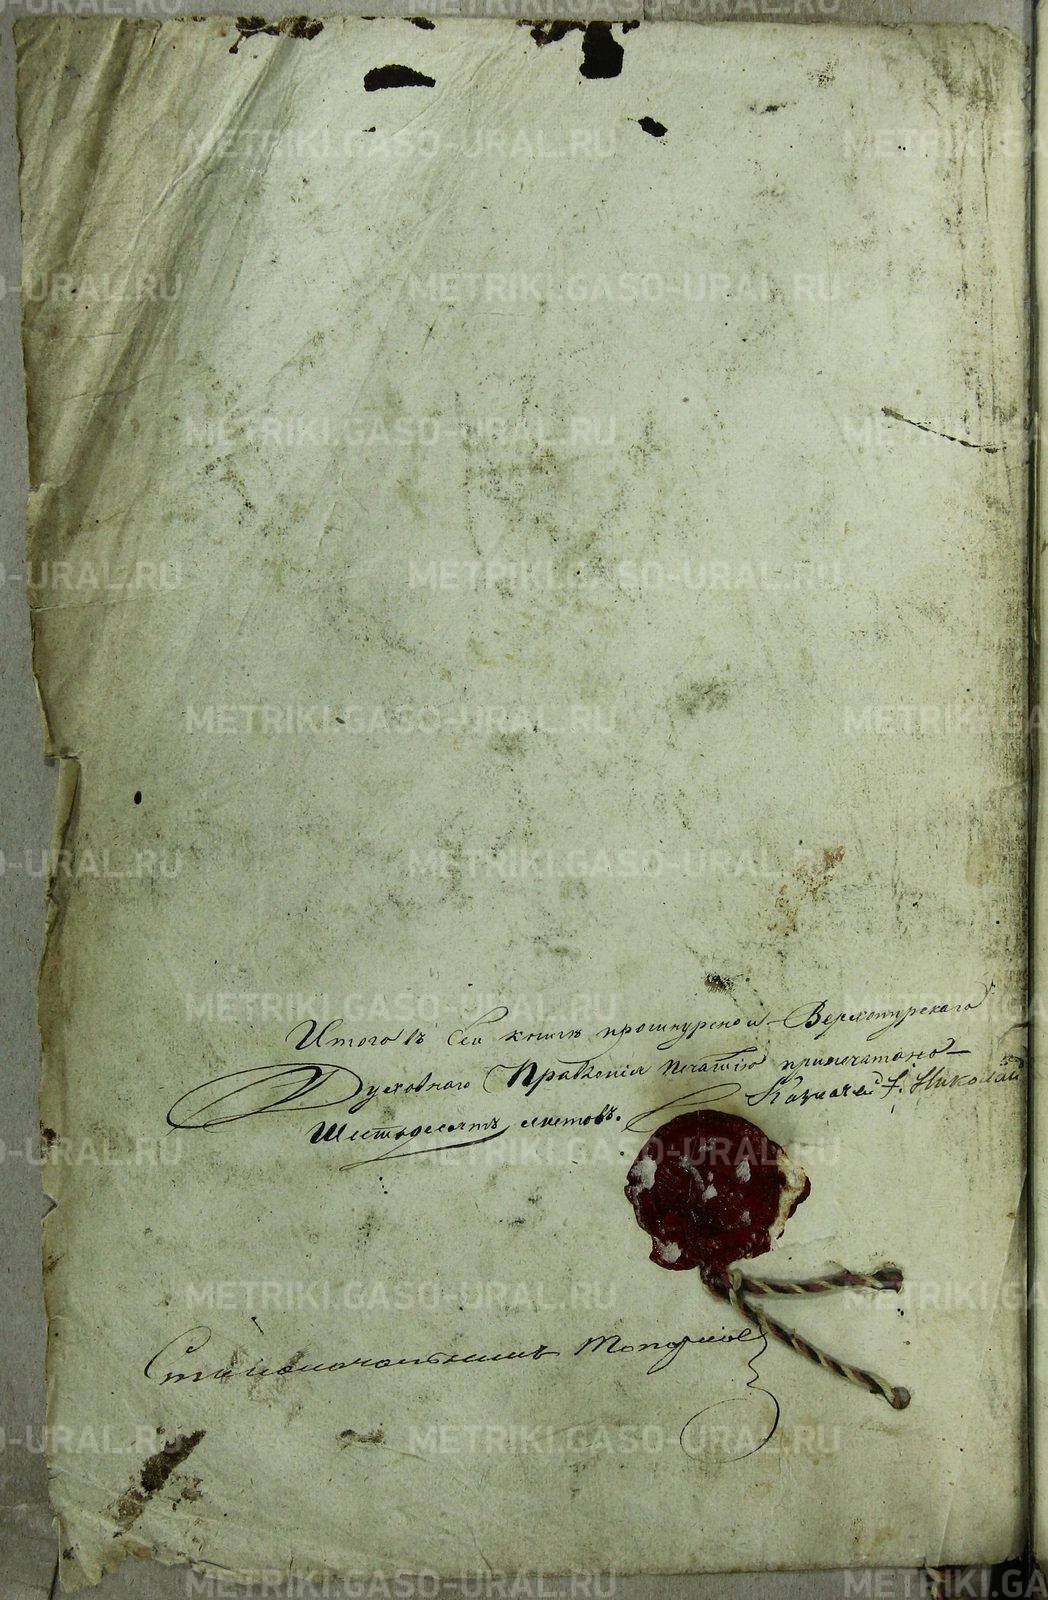 Итого въ сей книгѣ прошнурено и Верхотурскаго
Духовнаго Правленія печатію припечатано
Шестьдесятъ листовъ.
Казначей Николай
Столоначальникъ
METRIKI.GASO-URAL.RU